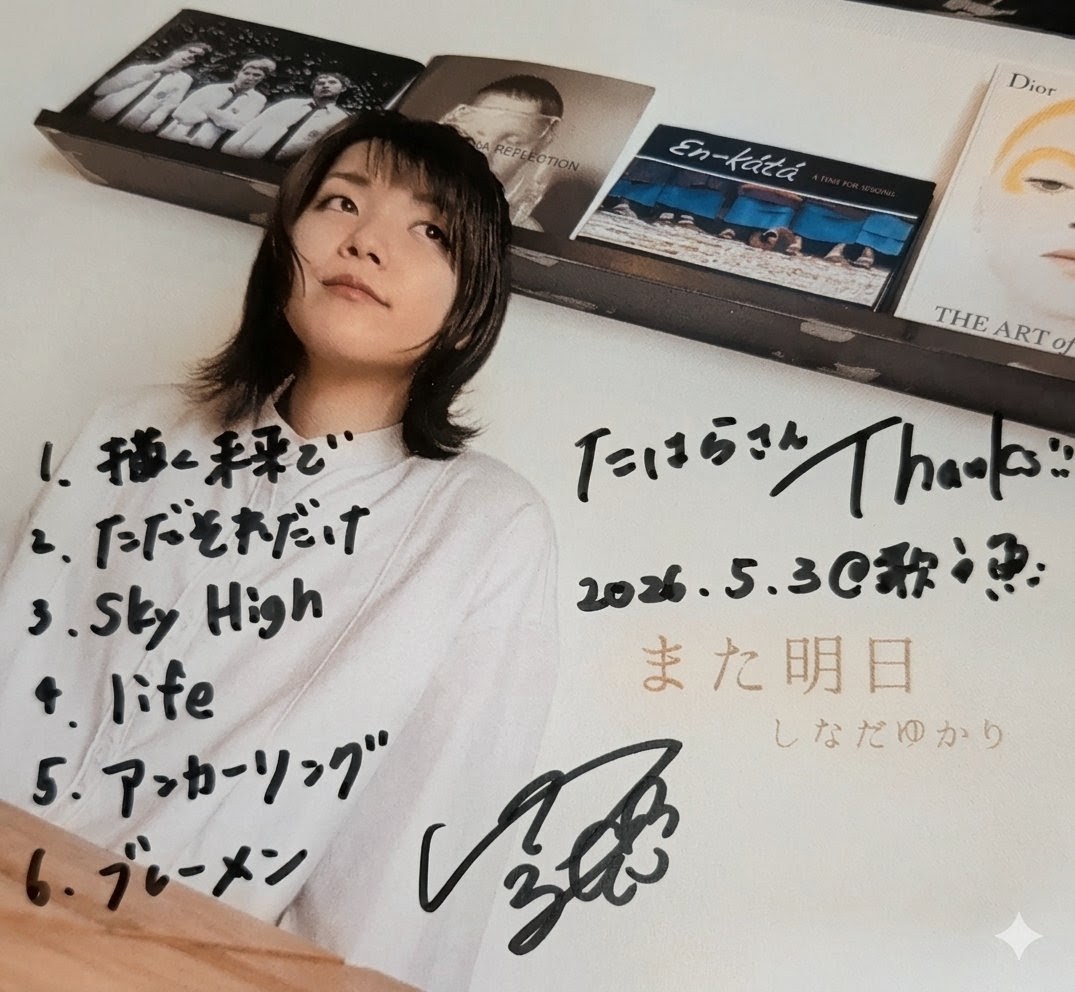 DA REFLECTION
En-kátá
Dior
THE ART of
1. 描く未来で
2. ただそれだけ
3. Sky High
4. life
5. アンカーリング
6. ブレーメン
たはらさん Thanks!!
2026.5.3@歌う魚
また明日
しなだゆかり